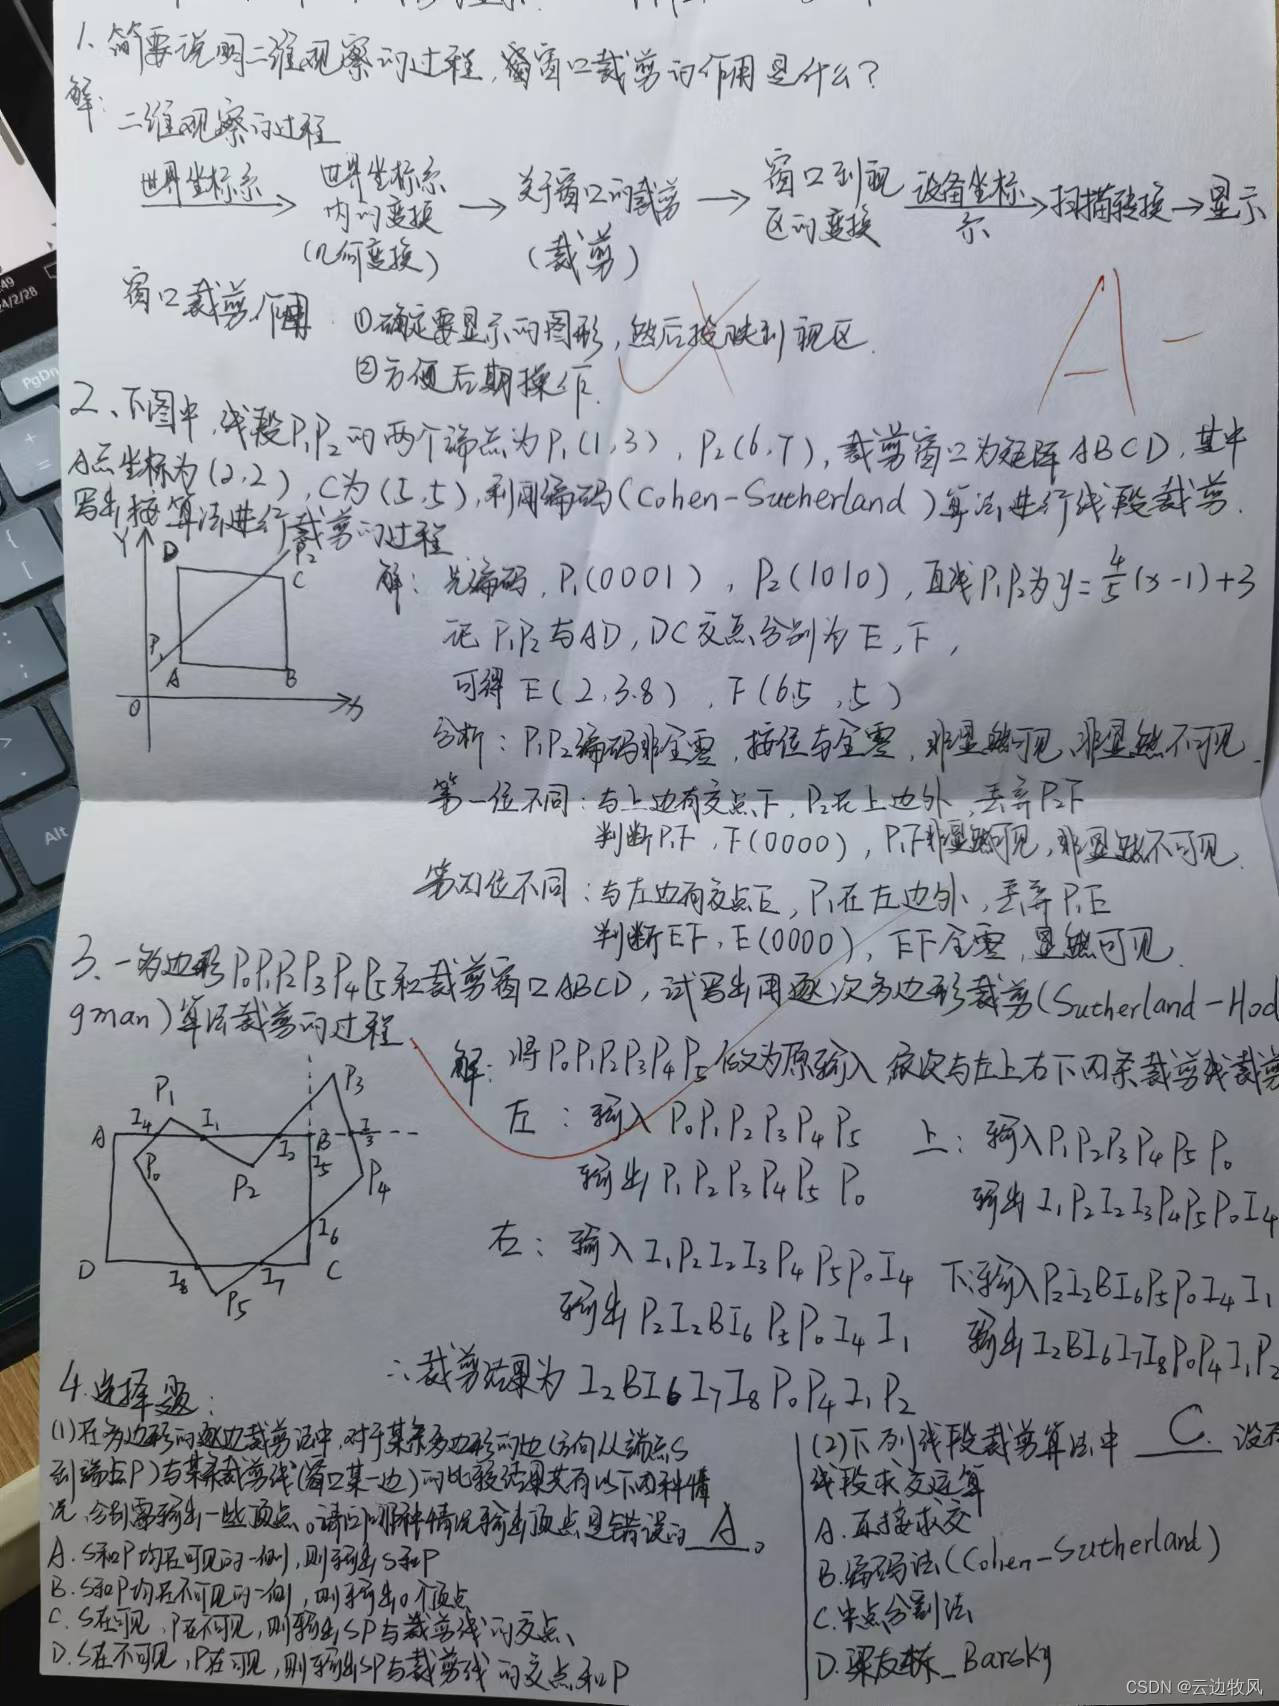 1、简要说明二维观察的过程，窗窗口裁剪的作用是什么？
解：
二维观察的过程
世界坐标系 → 世界坐标系内的变换（几何变换） → 关于窗口的裁剪（裁剪） → 窗口到视区的变换 设备坐标 → 扫描转换 → 显示
窗口裁剪作用 ①确定要显示的图形，然后投映到视区.
②方便后期操作.
A-
2、下图中，线段P₁P₂的两个端点为P₁(1,3)，P₂(6,7)，裁剪窗口为矩阵ABCD，其中
A点坐标为(2,2)，C为(5,5)，利用编码(Cohen-Sutherland)算法进行线段裁剪.
写出按算法进行裁剪的过程
Y D P₂ C P₁ A B O
解：先编码，P₁(0001)，P₂(1010)，直线P₁P₂为y=4/5(x-1)+3
记P₁P₂与AD，DC交点分别为E，F，
可得E(2,3.8)，F(6.5,5)
分析：P₁P₂编码非全零，按位与全零，非显然可见、非显然不可见.
第一位不同：与上边有交点F，P₂在上边外，丢弃P₂F
判断P₁F，F(0000)，P₁F非显然可见，非显然不可见.
第四位不同：与左边有交点E，P₁在左边外，丢弃P₁E
判断EF，E(0000)，EF全零，显然可见.
3、一多边形P₀P₁P₂P₃P₄P₅和裁剪窗口ABCD，试写出用逐次多边形裁剪(Sutherland-Hod
gman)算法裁剪的过程
P₁ P₃ I₄ I₁ A I₂ B I₃ I₅ P₀ P₂ P₄ I₆ D I₈ I₇ C P₅
解：将P₀P₁P₂P₃P₄P₅做为原输入 依次与左上右下四条裁剪线裁剪
左：输入P₀P₁P₂P₃P₄P₅
输出P₁P₂P₃P₄P₅P₀
上：输入P₁P₂P₃P₄P₅P₀
输出I₁P₂I₂I₃P₄P₅P₀I₄
右：输入I₁P₂I₂I₃P₄P₅P₀I₄
输出P₂I₂BI₆P₅P₀I₄I₁
下：输入P₂I₂BI₆P₅P₀I₄I₁
输出I₂BI₆I₇I₈P₀P₄I₁P₂
∴裁剪结果为I₂BI₆I₇I₈P₀P₄I₁P₂
4.选择题：
(1)在多边形的逐边裁剪法中，对于某条多边形的边(方向从端点S
到端点P)与某条裁剪线(窗口某一边)的比较结果共有以下四种情
况，分别需输出一些顶点。请问哪种情况输出顶点是错误的 A 。
A. S和P均在可见的一侧，则输出S和P
B. S和P均在不可见的一侧，则输出0个顶点
C. S在可见，P在不可见，则输出SP与裁剪线的交点、
D. S在不可见，P在可见，则输出SP与裁剪线的交点和P
(2)下列线段裁剪算法中 C. 没有
线段求交运算
A. 直接求交
B. 编码法(Cohen-Sutherland)
C. 中点分割法
D. 梁友栋_Barsky
PgDn
Alt
CSDN @云边牧风